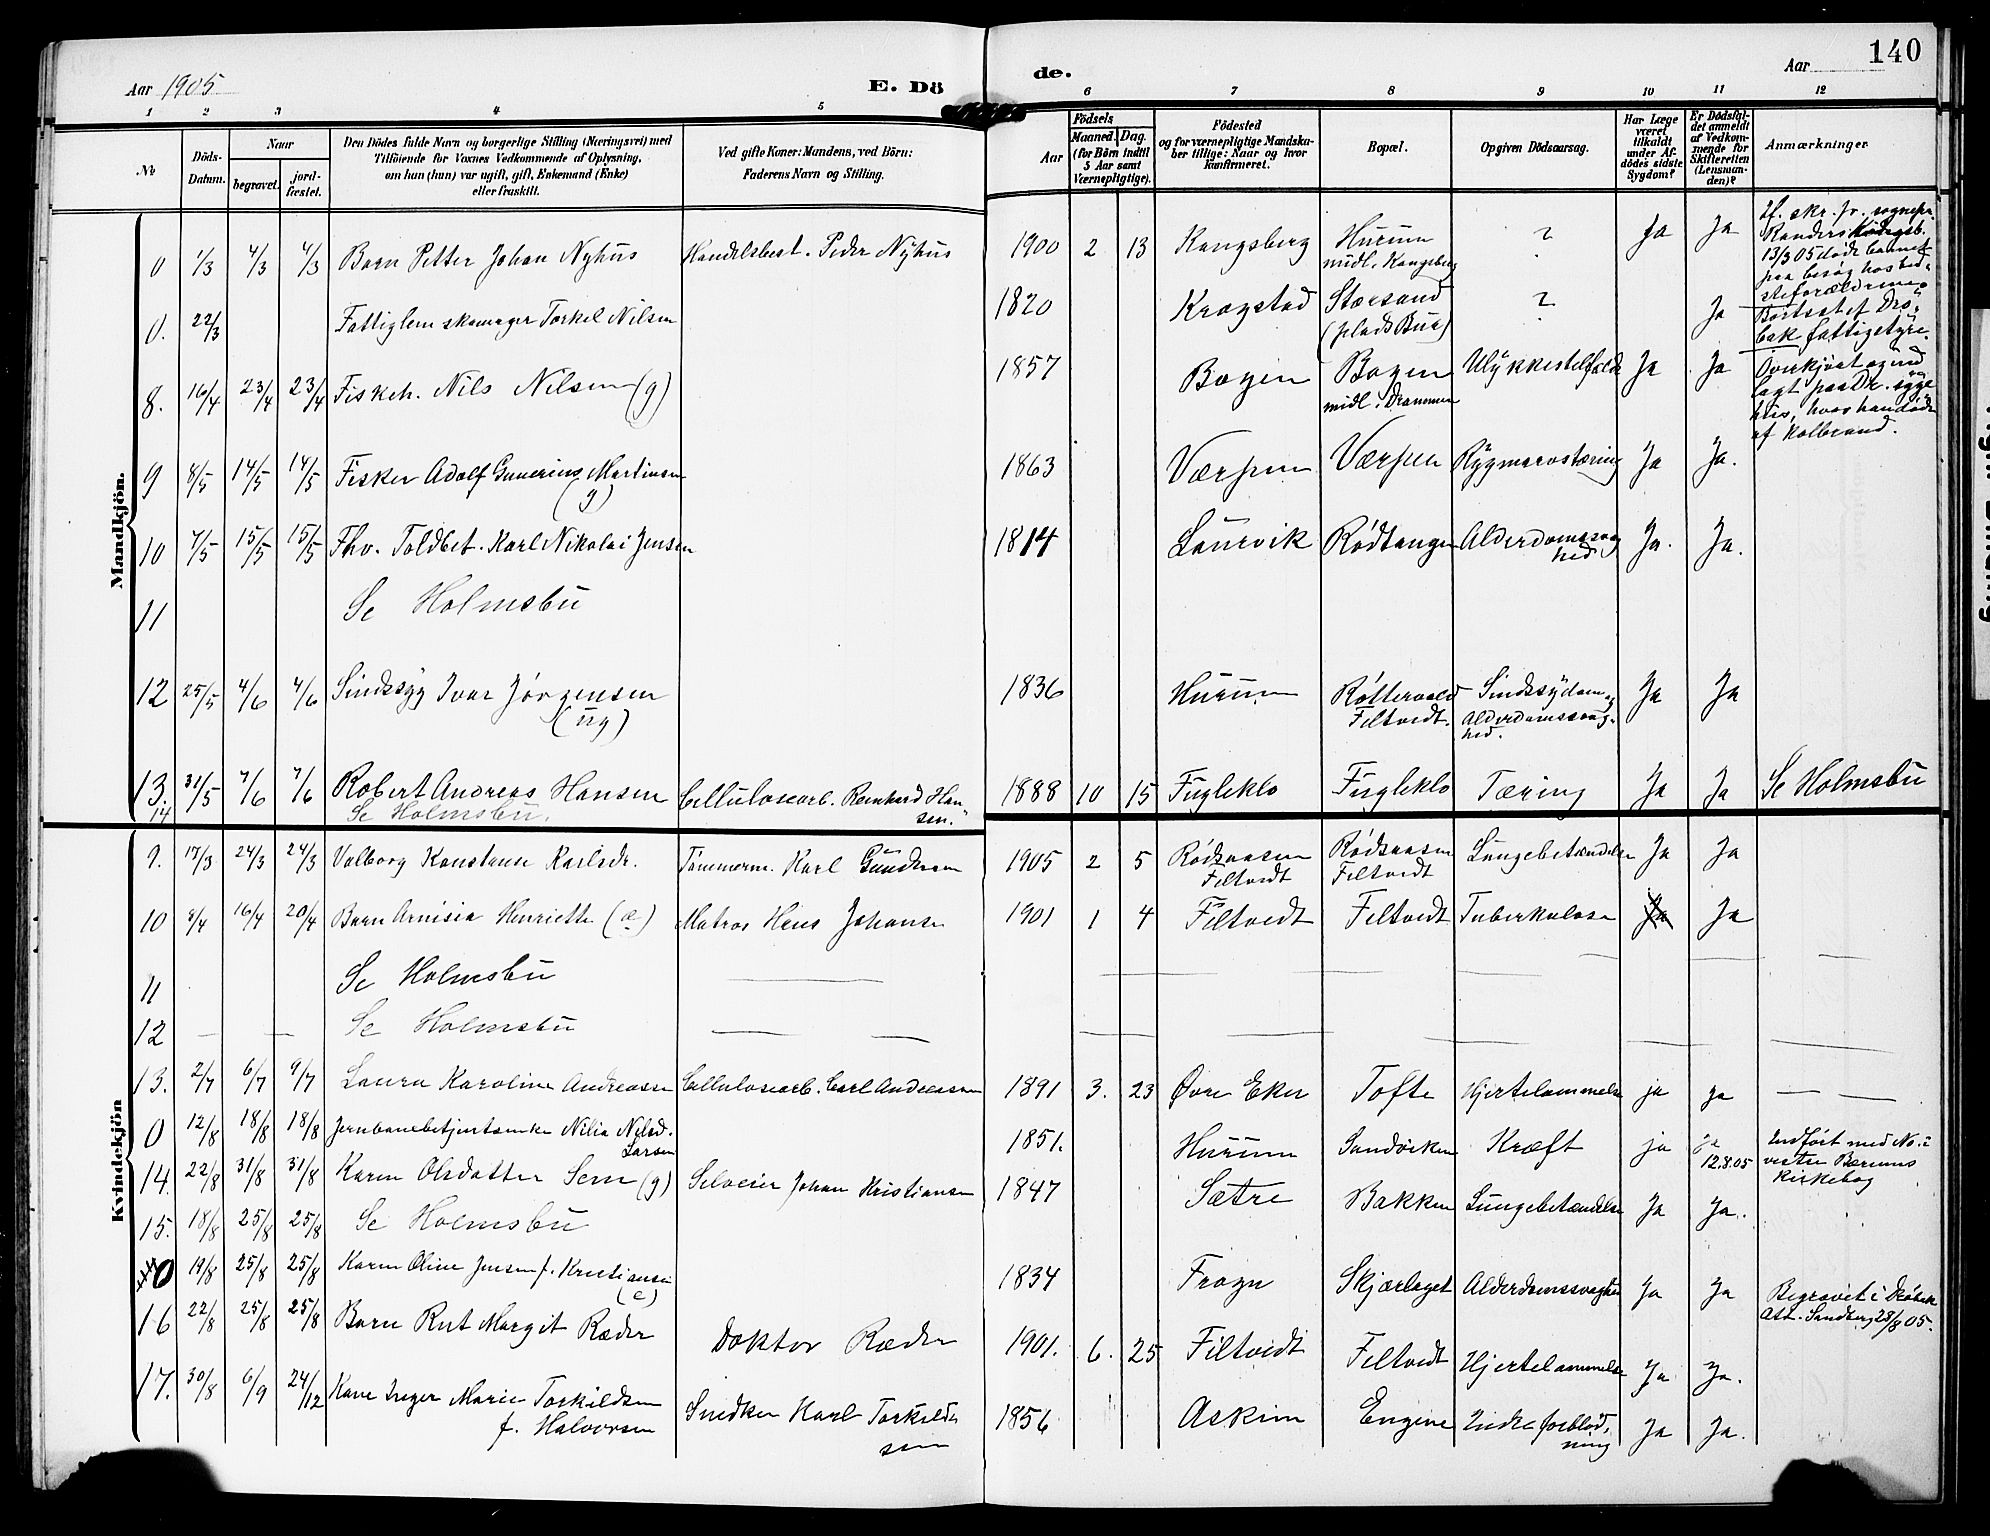 140
Aar 1905
E. Dö
de.
Aar
1 2 3 4 5 6 7 8 9 10 11 12
No
Döds-Datum.
Naar
begravet.
jordfæstet.
Den Dödes fulde Navn og borgerlige Stilling (Næringsvei) med
Tilföiende for Voxnes Vedkommende af Oplysning,
om hun (hun) var ugift, gift, Enkemand (Enke)
eller fraskilt.
Ved gifte Koner: Mandens, ved Börn:
Faderens Navn og Stilling.
Födsels
Aar
Maaned. Dag.
(for Börn indtil
5 Aar samt
Værnepligtige).
Födested
og for værnepligtige Mandska-
ber tillige: Naar og hvor
konfirmeret.
Bopæl.
Opgiven Dödsaarsag.
Har Læge
været
tilkaldt
under Af-
dödes sidste
Sygdom?
Er Dödsfal-
det anmeldt
af Vedkom-
mende for
Skifteretten
(Lensman-
den)?
Anmærkninger
Mandkjön.
0 1/3 4/3 4/3 Barn Petter Johan Nyhus Handelsbest. Peder Nyhus 1900 2 13 Kongsberg Hurum midl. Kongsberg ? Ja Ja
Jf. skr. fr. sognepr.
Randers Kongsb.
13/3 05 døde barnet
paa besøg hos bed-
steforældrene.
0. 22/3 Fattiglem skomager Torkel Nilsen 1820 Krogstad Storsand (plads Bua) ? Ja
Bortsat af Drø-
bak fattigstyre.
8. 16/4 23/4 23/4 Fiskeh. Nils Nilsen (g) 1857 Bogen Bogen midl. Drammen Ulykkestilfælde Ja Ja
Overkjørt og ind
lagt paa Dr. syge
hus, hvor han døde
af kolbrand.
9 8/5 14/5 14/5 Fisker Adolf Gunerius Martinsen (g) 1863 Værpen Værpen Rygmarvstæring Ja Ja.
10 7/5 15/5 15/5 Fhv. Toldbet. Karl Nikolai Jensen 1814 Laurvik Rødtangen Alderdomssvaghed. Ja. Ja.
11 Se Holmsbu
12 25/5 4/6 4/6 Sindssyg Ivar Jørgensen (ug) 1836 Hurum. Filtvedt. Sindssygdom og Alderdomssvaghed. Ja Ja
13. 31/5 7/6 7/6 Robert Andreas Hansen Cellulosearb. Reinhard Hansen. 1888 10 15 Fugleklo Fugleklo Tæring Ja Ja Se Holmsbu
14 Se Holmsbu.
Kvindekjön
9. 17/3 24/3 24/3 Valborg Konstanse Karlsdr. Tømmerm. Karl Gundersen 1905 2 5 Rødsaasen Filtvedt Rødsaasen Filtvedt Lungebetændelse Ja Ja
10 8/4 16/4 20/4 Barn Arnisia Henriette (æ) Matros Hans Johansen 1901 1 4 Filtvedt Filtvedt Tuberkulose Ja Ja
11 Se Holmsbu — — — — — — —
12 — — Se Holmsbu — — — — — — —
13. 2/7 6/7 9/7 Laura Karoline Andreassen Cellulosearb. Carl Andreassen 1891 3. 23 Øvre Eker Tofte Hjertelammelse ja ja — —
0 12/8 18/8 18/8 Jernbanebetjentsenke Nilia Nilsd. Larsen 1851. Hurum Sandviken Kræft ja Ja 12.8.05
Indført med No. i
vestre Bærums
Kirkebog
14. 22/8 31/8 31/8 Karen Olsdatter Sem (g) Selveier Johan Kristiansen 1847 Sætre Bakken Lungebetændelse Ja Ja.
15. 18/8 25/8 25/8 Se Holmsbu
0 19/8 25/8 25/8 Karen Oline Jensen f. Kristiansen (e) 1834 Frogn Skjærlaget Alderdomssvaghed Ja Ja
Begravet i Drøbak
Att. Sandberg 28/8 05.
16 22/8 25/8 25/8 Barn Rut Margit Ræder Doktor Ræder 1901. 6. 25 Filtvedt Filtvedt Hjertelammelse Ja Ja.
17. 30/8 6/9 24/12 Kone Inger Marie Torkildsen f. Halvorsen Snedker Karl Torkildsen 1856 Askim Engene Indre forblødning Ja Ja.